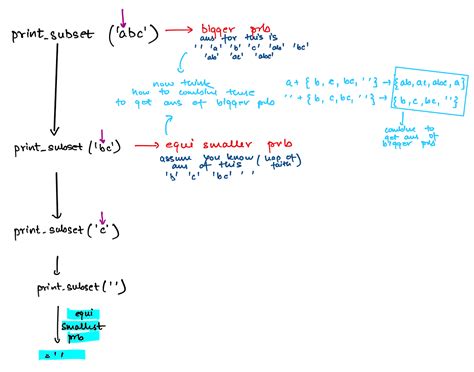 print_subset ('abc') → bigger prb
ans for this is
'' 'a' 'b' 'c' 'ab' 'bc'
'ac' 'abc'
now think
how to combine these
to get ans of bigger prb
a + { b, c, bc, '' } → {ab, ac, abc, a}
'' + { b, c, bc, '' } → {b, c, bc, ''}
combine to
get ans of
bigger prb
print_subset('bc') → equi smaller prb
assume you know (leap of
ans of this faith)
'b' 'c' 'bc' ''
print_subset('c')
print_subset('')
equi
smallest
prb
''